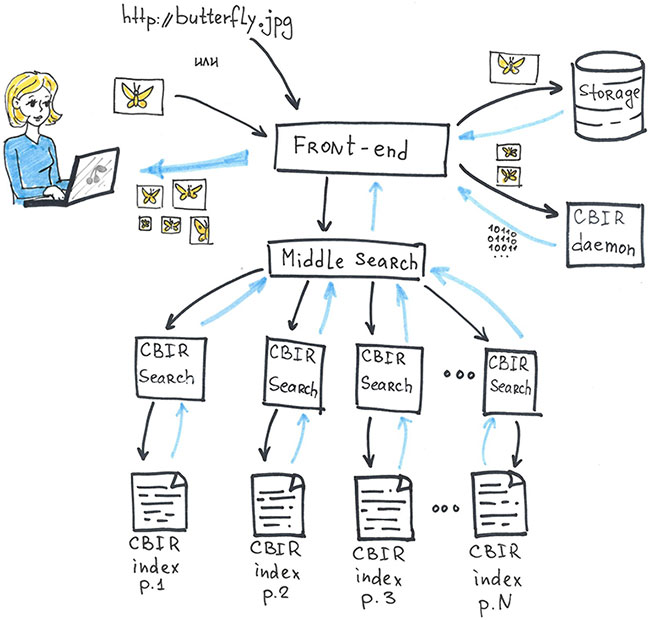 http://butterfly.jpg
или
Storage
Front-end
CBIR
daemon
10110
01110
10011
...
Middle Search
CBIR
Search
CBIR
Search
CBIR
Search
CBIR
Search
CBIR
index
p.1
CBIR
index
p.2
CBIR
index
p.3
CBIR
index
p.N